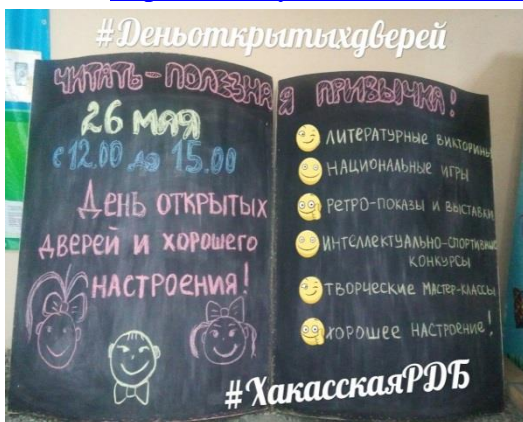 #Деньоткрытыхдверей
ЧИТАТЬ - ПОЛЕЗНАЯ ПРИВЫЧКА!
26 МАЯ
с 12.00 до 15.00
День открытых
дверей и хорошего
настроения!
литературные викторины
национальные игры
ретро-показы и выставки
интеллектуально-спортивные
конкурсы
творческие мастер-классы
хорошее настроение!
#ХакасскаяРДБ